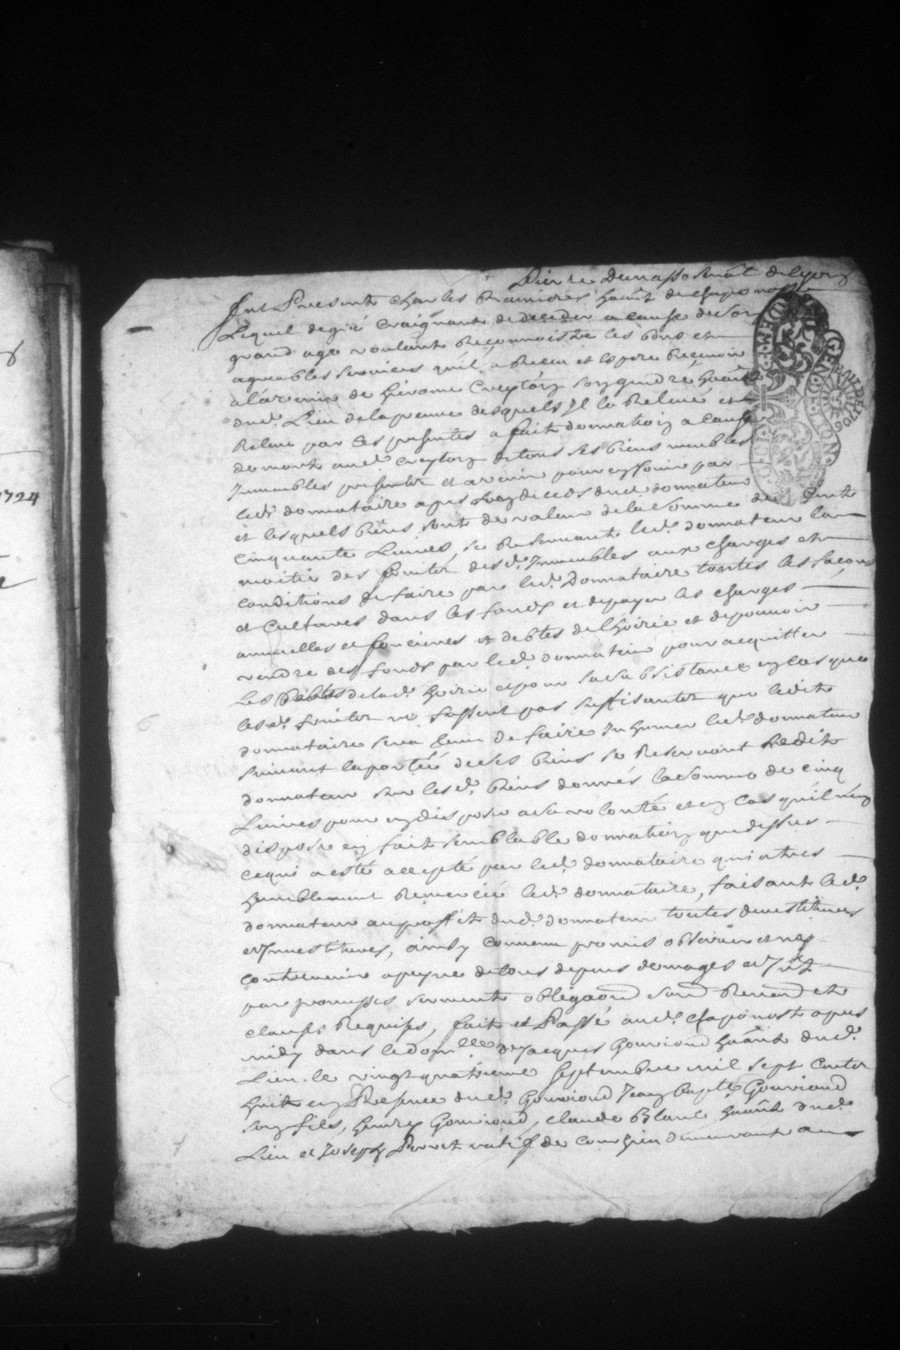 1724
Pierre Denasso Senât de Lyon
Fut Present Charles habânt de chaponost
Lequel de gré Craignant de deceder a cause de son
grand age voulant Reconnoistre les bons et
agreables services quil a Receu et espere Recevoir
a lavenir de hierosme Creztoz son gendre habânt
dud. Lieu de la preuve desquels Il la Releue et
Releue par ces presentes a fait donnation a cause
de mort aud. Creztoz de tous ses biens meubles
Immeubles presents et avenir pour en Jouir par
led. donnataire apres Le deceds dud. donnateur
et lesquels biens sont de valeur de la Somme de Cent
Cinquante Livres, se Reservant led. donnateur la
moitié des fruits desd. Immeubles aux charges et
conditions de faire par led. Donnataire toutes les façons
et Cultures dans les fonds et de payer les charges
annuelles et foncieres et debtes de lhoirie et de pouvoir
vendre des fonds par led. donnateur pour acquitter
Les Debtes de lad. hoirie et pour sa Subsistance en cas que
lesd. fruits ne fussent pas suffisantes que ledit
donnataire sera tenu de faire Inhumer led. donnateur
suivant la portée de ses biens se Reservant Ledit
donnateur sur lesd. biens donnés la Somme de cinq
Livres pour en disposer a sa volonté et en Cas quil nen
dispose en fait semblable donnation que dessus
ce qui a esté accepté par led. donnataire qui a tres
humblement Remercié led. donnataire, faisant led.
donnateur au proffit dud. donnateur toutes devestitures
et Investitures, ainsy Convenu promis observer et ney
contrevenir a peyne de tous depens domages et Jnt
par promesses serments obligaōns soumd Renond et
clauses Requises, fait et Passé aud. chaponost apres
midy dans le dom.lle de Jacques Gouvioud habânt dud.
Lieu le vingt quatrieme Septembre mil sept Cents
huit en Presence dud. Gouvioud Jean bapte Gouvioud
son fils, henry Gouvioud, claude Blanc habânt dud.
Lieu et Joseph natif de demeurant au
GEN. DE LYON